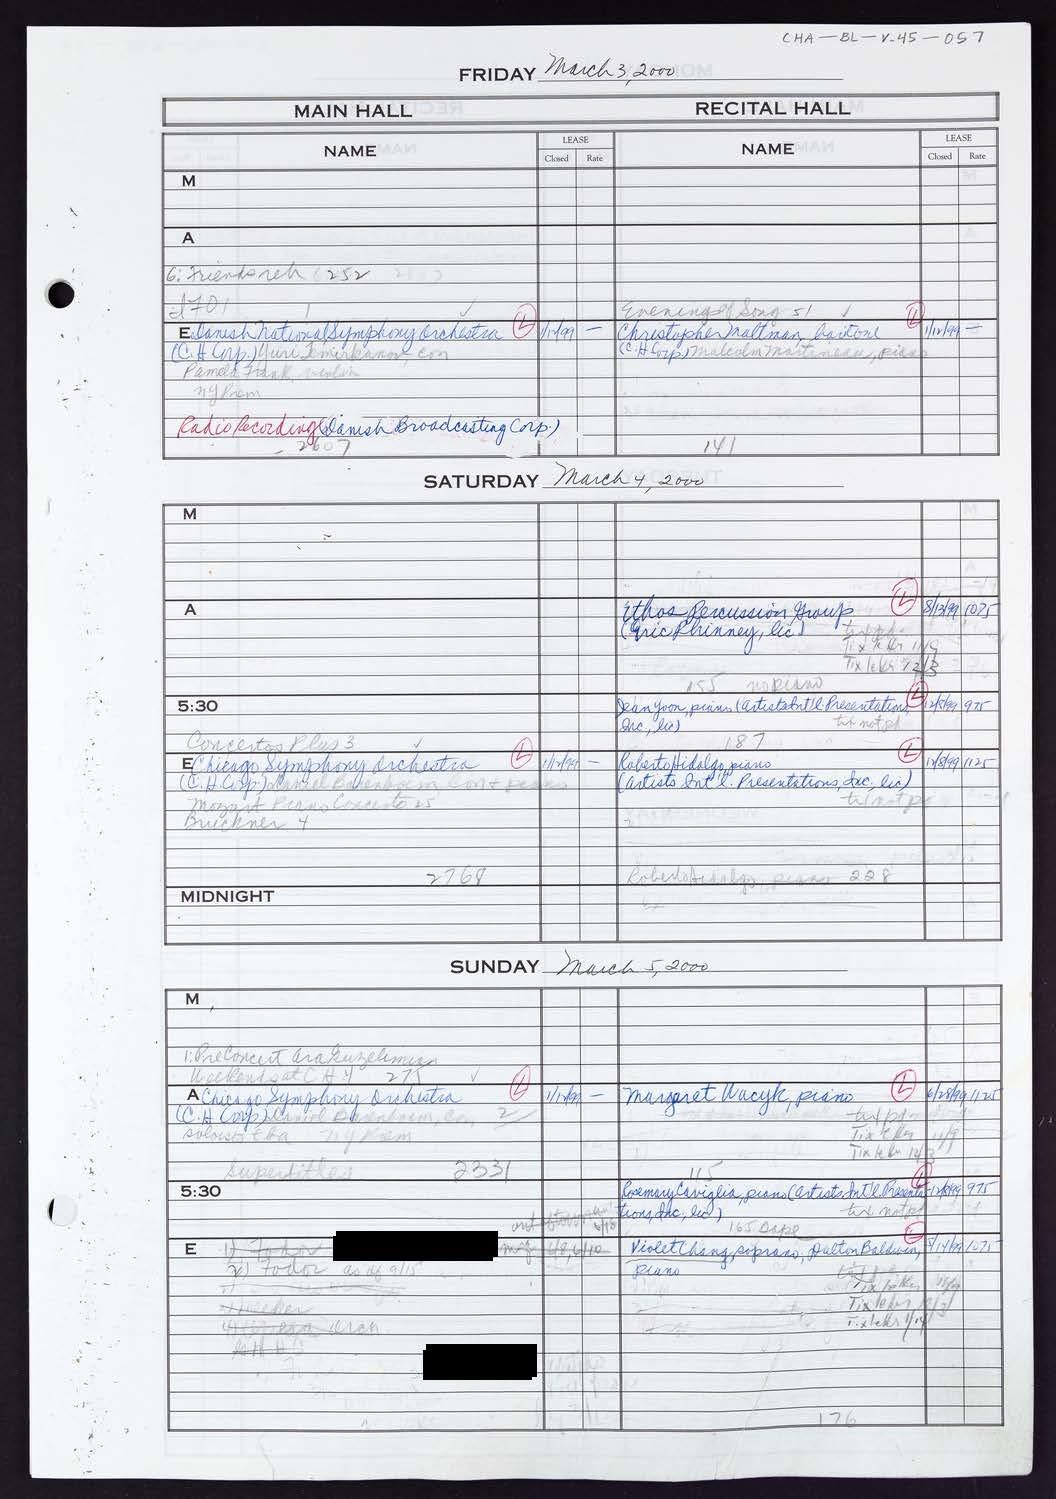 CHA-BL-V.45-057
FRIDAY March 3, 2000
MAIN HALL
RECITAL HALL
NAME
LEASE
Closed Rate
NAME
LEASE
Closed Rate
M
A
6: Friends reh (252
1701
Evening of Song 51
E Danish National Symphony Orchestra L 1/12/99 —
(C.H. Corp.) Yuri Temirkanov, con
Pamela Frank, violin
NY Prem
Christopher Maltman, baritone L 1/12/99 —
(C.H. Corp.) Malcolm Martineau, piano
Radio Recording (Danish Broadcasting Corp.)
2607
141
SATURDAY March 4, 2000
M
A
Ethos Percussion Group L 8/13/99 1075
(Eric Phinney, lic)
Tix lekr 11/9
Tix lekr 12/3
155 no piano
5:30
Jean Yoon, piano (Artists Int'l Presentations, L 12/8/99 975
Inc, lic)
txt not pd
187
Concertos Plus 3
E Chicago Symphony Orchestra L 1/12/99 —
(C.H. Corp.) Daniel Barenboim Con + piano
Mozart Piano Concerto 25
Bruckner 4
Roberto Hidalgo, piano L 11/8/99 1125
(Artists Int'l. Presentations, Inc, lic)
txt not pd
2768
Roberto Hidalgo, piano 228
MIDNIGHT
SUNDAY March 5, 2000
M
1: PreConcert Ara Guzelimian
Weekends at C.H. 275
A Chicago Symphony Orchestra L 1/12/99 —
(C.H. Corp.) Daniel Barenboim, Con, 2
Soloists tba NY Prem
Supertitles 2331
Margaret Wacyk, piano L 6/28/99 1125
txt pd
Tix lekr 11/9
Tix lekr 12/3
115
5:30
Rosemary Caviglia, piano (Artists Int'l. Presenta- L 12/8/99 975
tions, Inc, lic)
txt not pd
165
E
1) Fodor
6/8, 6/10
2) Fodor as of 9/15
Violet Chang, soprano, Dalton Baldwin, L 5/14/99 1075
piano
Tix lekr 11/9
Tix lekr 12/3
Tix lekr 1/14
176